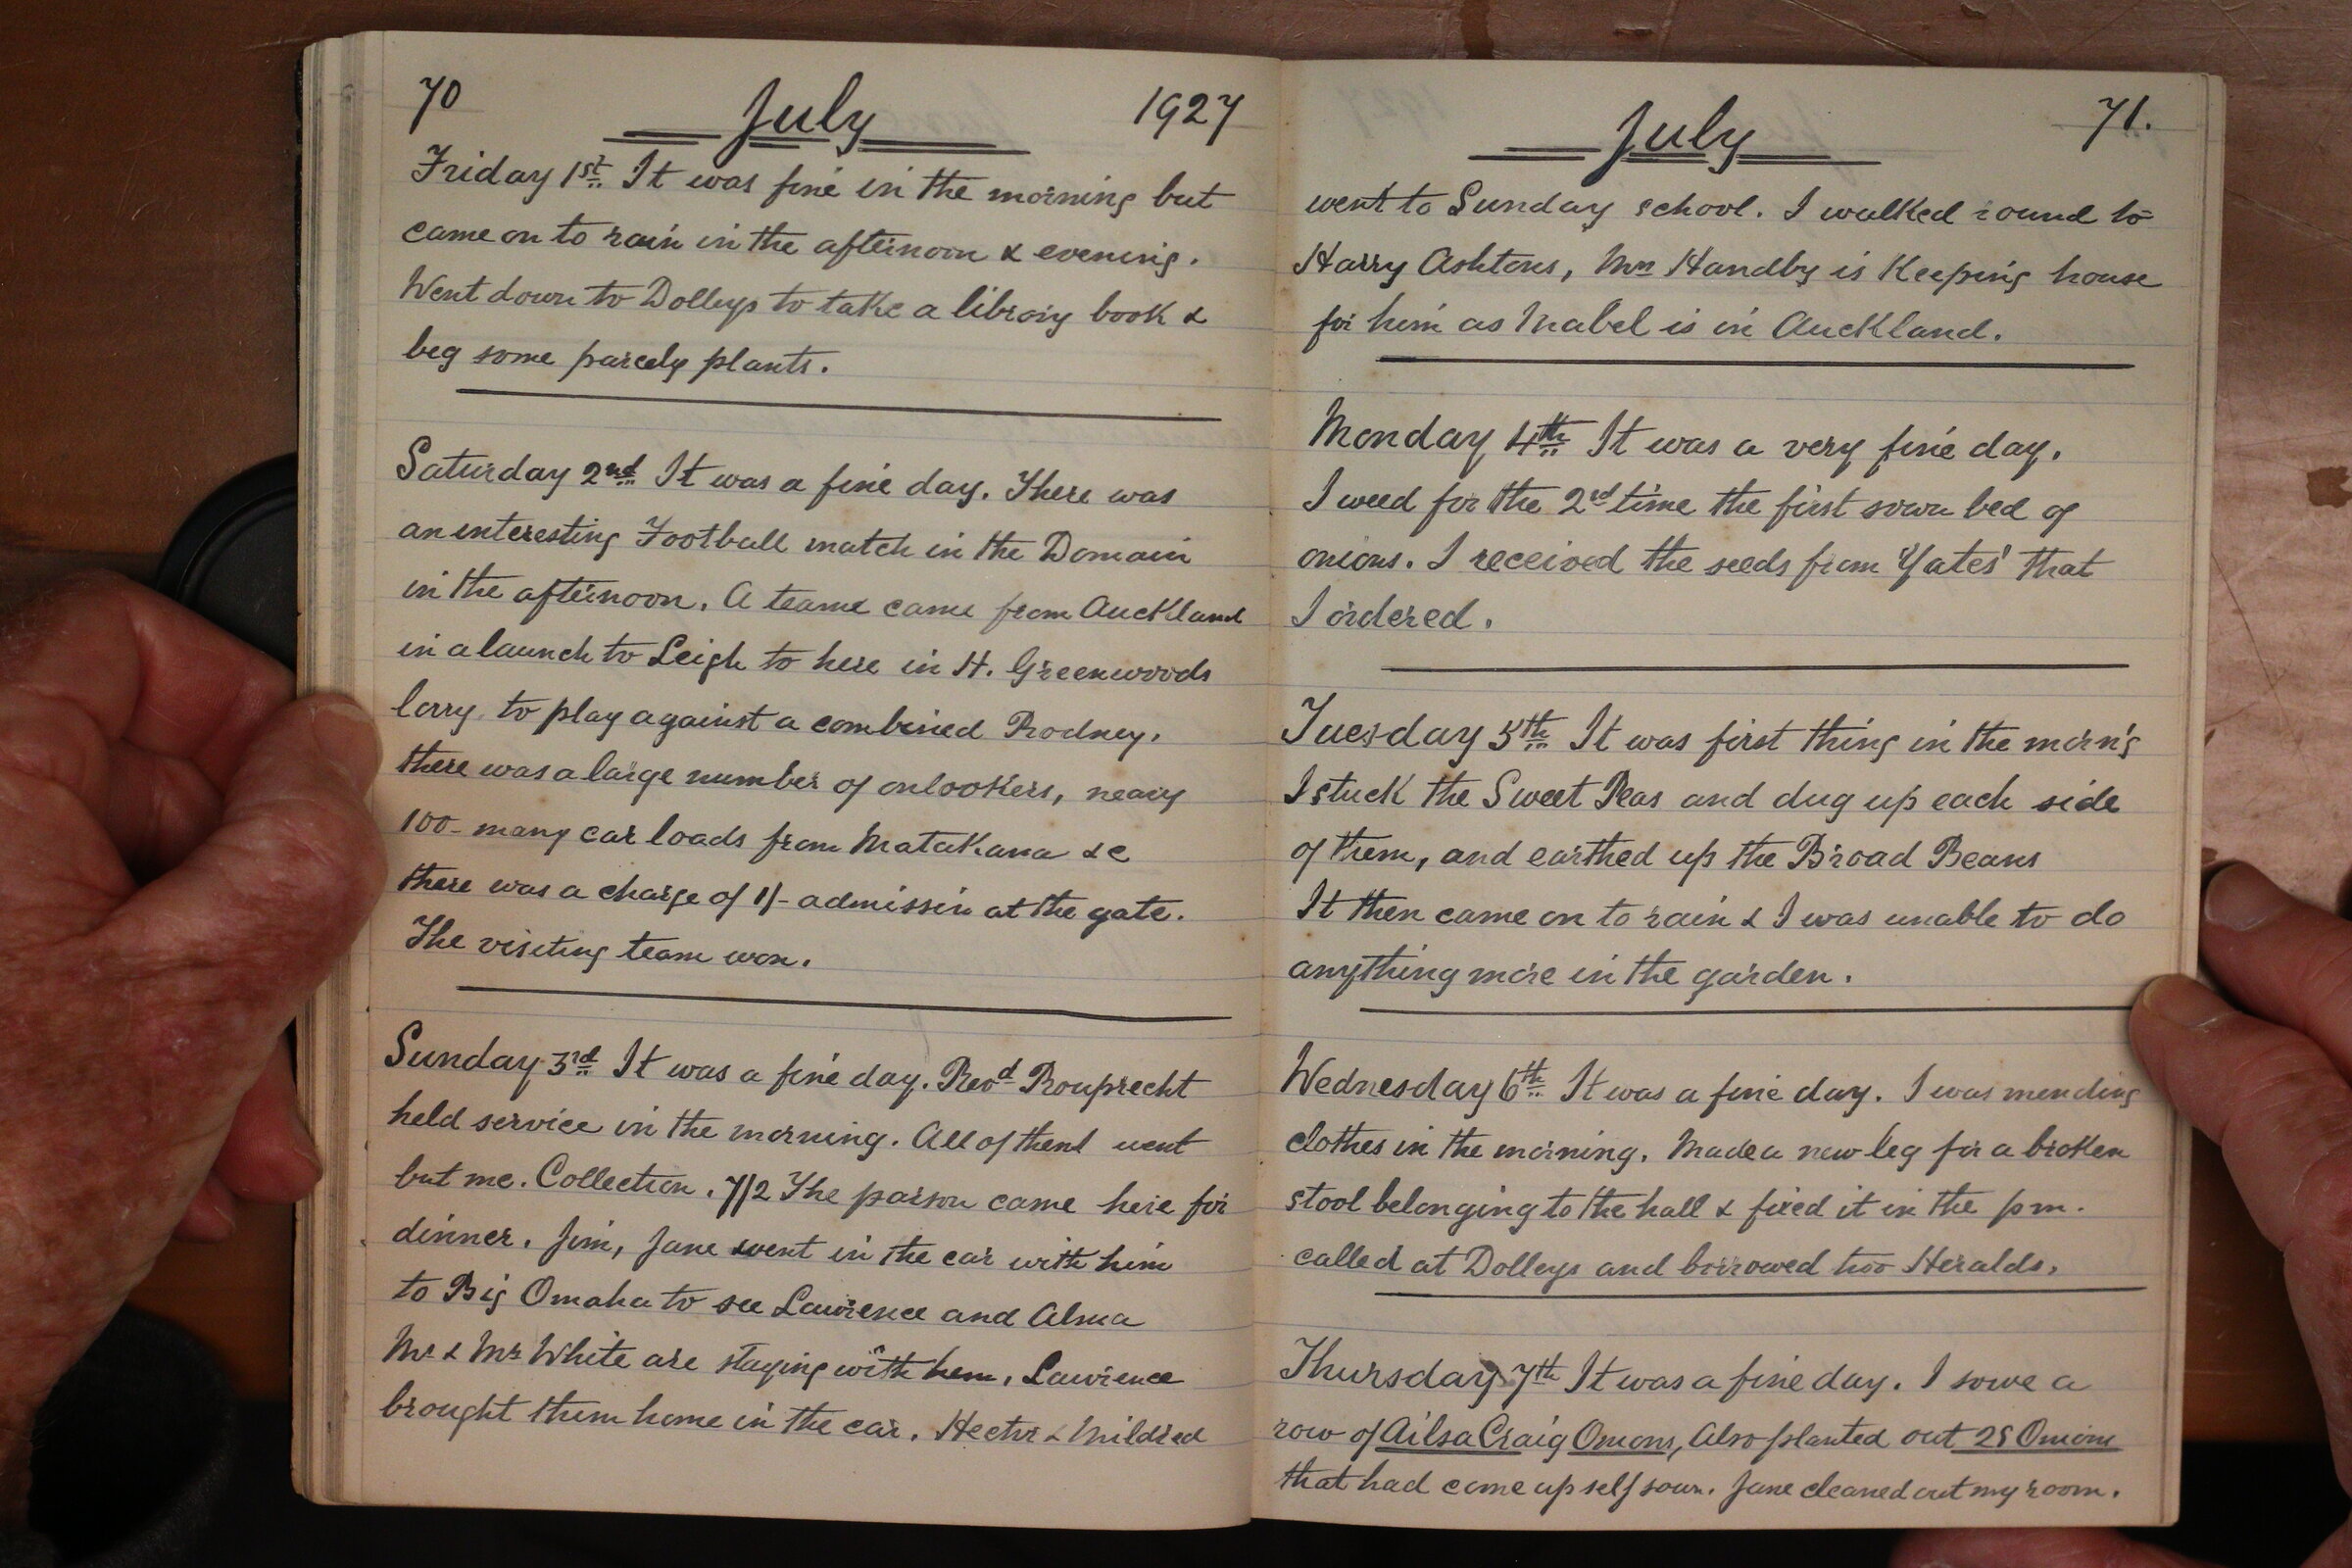 70 July 1927
Friday 1st. It was fine in the morning but
came on to rain in the afternoon & evening.
Went down to Dolleys to take a library book &
beg some parcely plants.
Saturday 2nd It was a fine day. There was
an interesting Football match in the Domain
in the afternoon. A teame came from Auckland
in a launch to Leigh to here in H. Greenwoods
lorry to play against a combined Rodney.
there was a large number of onlookers, neary
100 - many car loads from Matakana &c
there was a charge of 1/- admissin at the gate.
The visiting team won.
Sunday 3rd It was a fine day. Revd Rouprecht
held service in the morning. All of them went
but me. Collection. 7/2 The parson came here for
dinner. Jim, Jane went in the car with him
to Big Omaha to see Lawrence and Alma
Mr & Mrs White are staying with hem. Lawrence
brought them home in the car. Hector & Mildred
July 71.
went to Sunday school. I walked round to
Harry Ashtons, Mrs Handby is Keeping house
for him as Mabel is in Auckland.
Monday 4th It was a very fine day.
I weed for the 2nd time the first sown bed of
onions. I received the seeds from 'Yates' that
I ordered.
Tuesday 5th It was first thing in the morn'g
I stuck the Sweet Peas and dug up each side
of them, and earthed up the Broad Beans
It then came on to rain & I was unable to do
anything more in the garden.
Wednesday 6th It was a fine day. I was mending
clothes in the morning. Made a new leg for a broken
stool belonging to the hall & fixed it in the pm.
called at Dolleys and borrowed two Heralds.
Thursday 7th It was a fine day. I sowe a
row of Ailsa Craig Onions, Also planted out 28 Onions
that had come up self sown. Jane cleaned out my room.